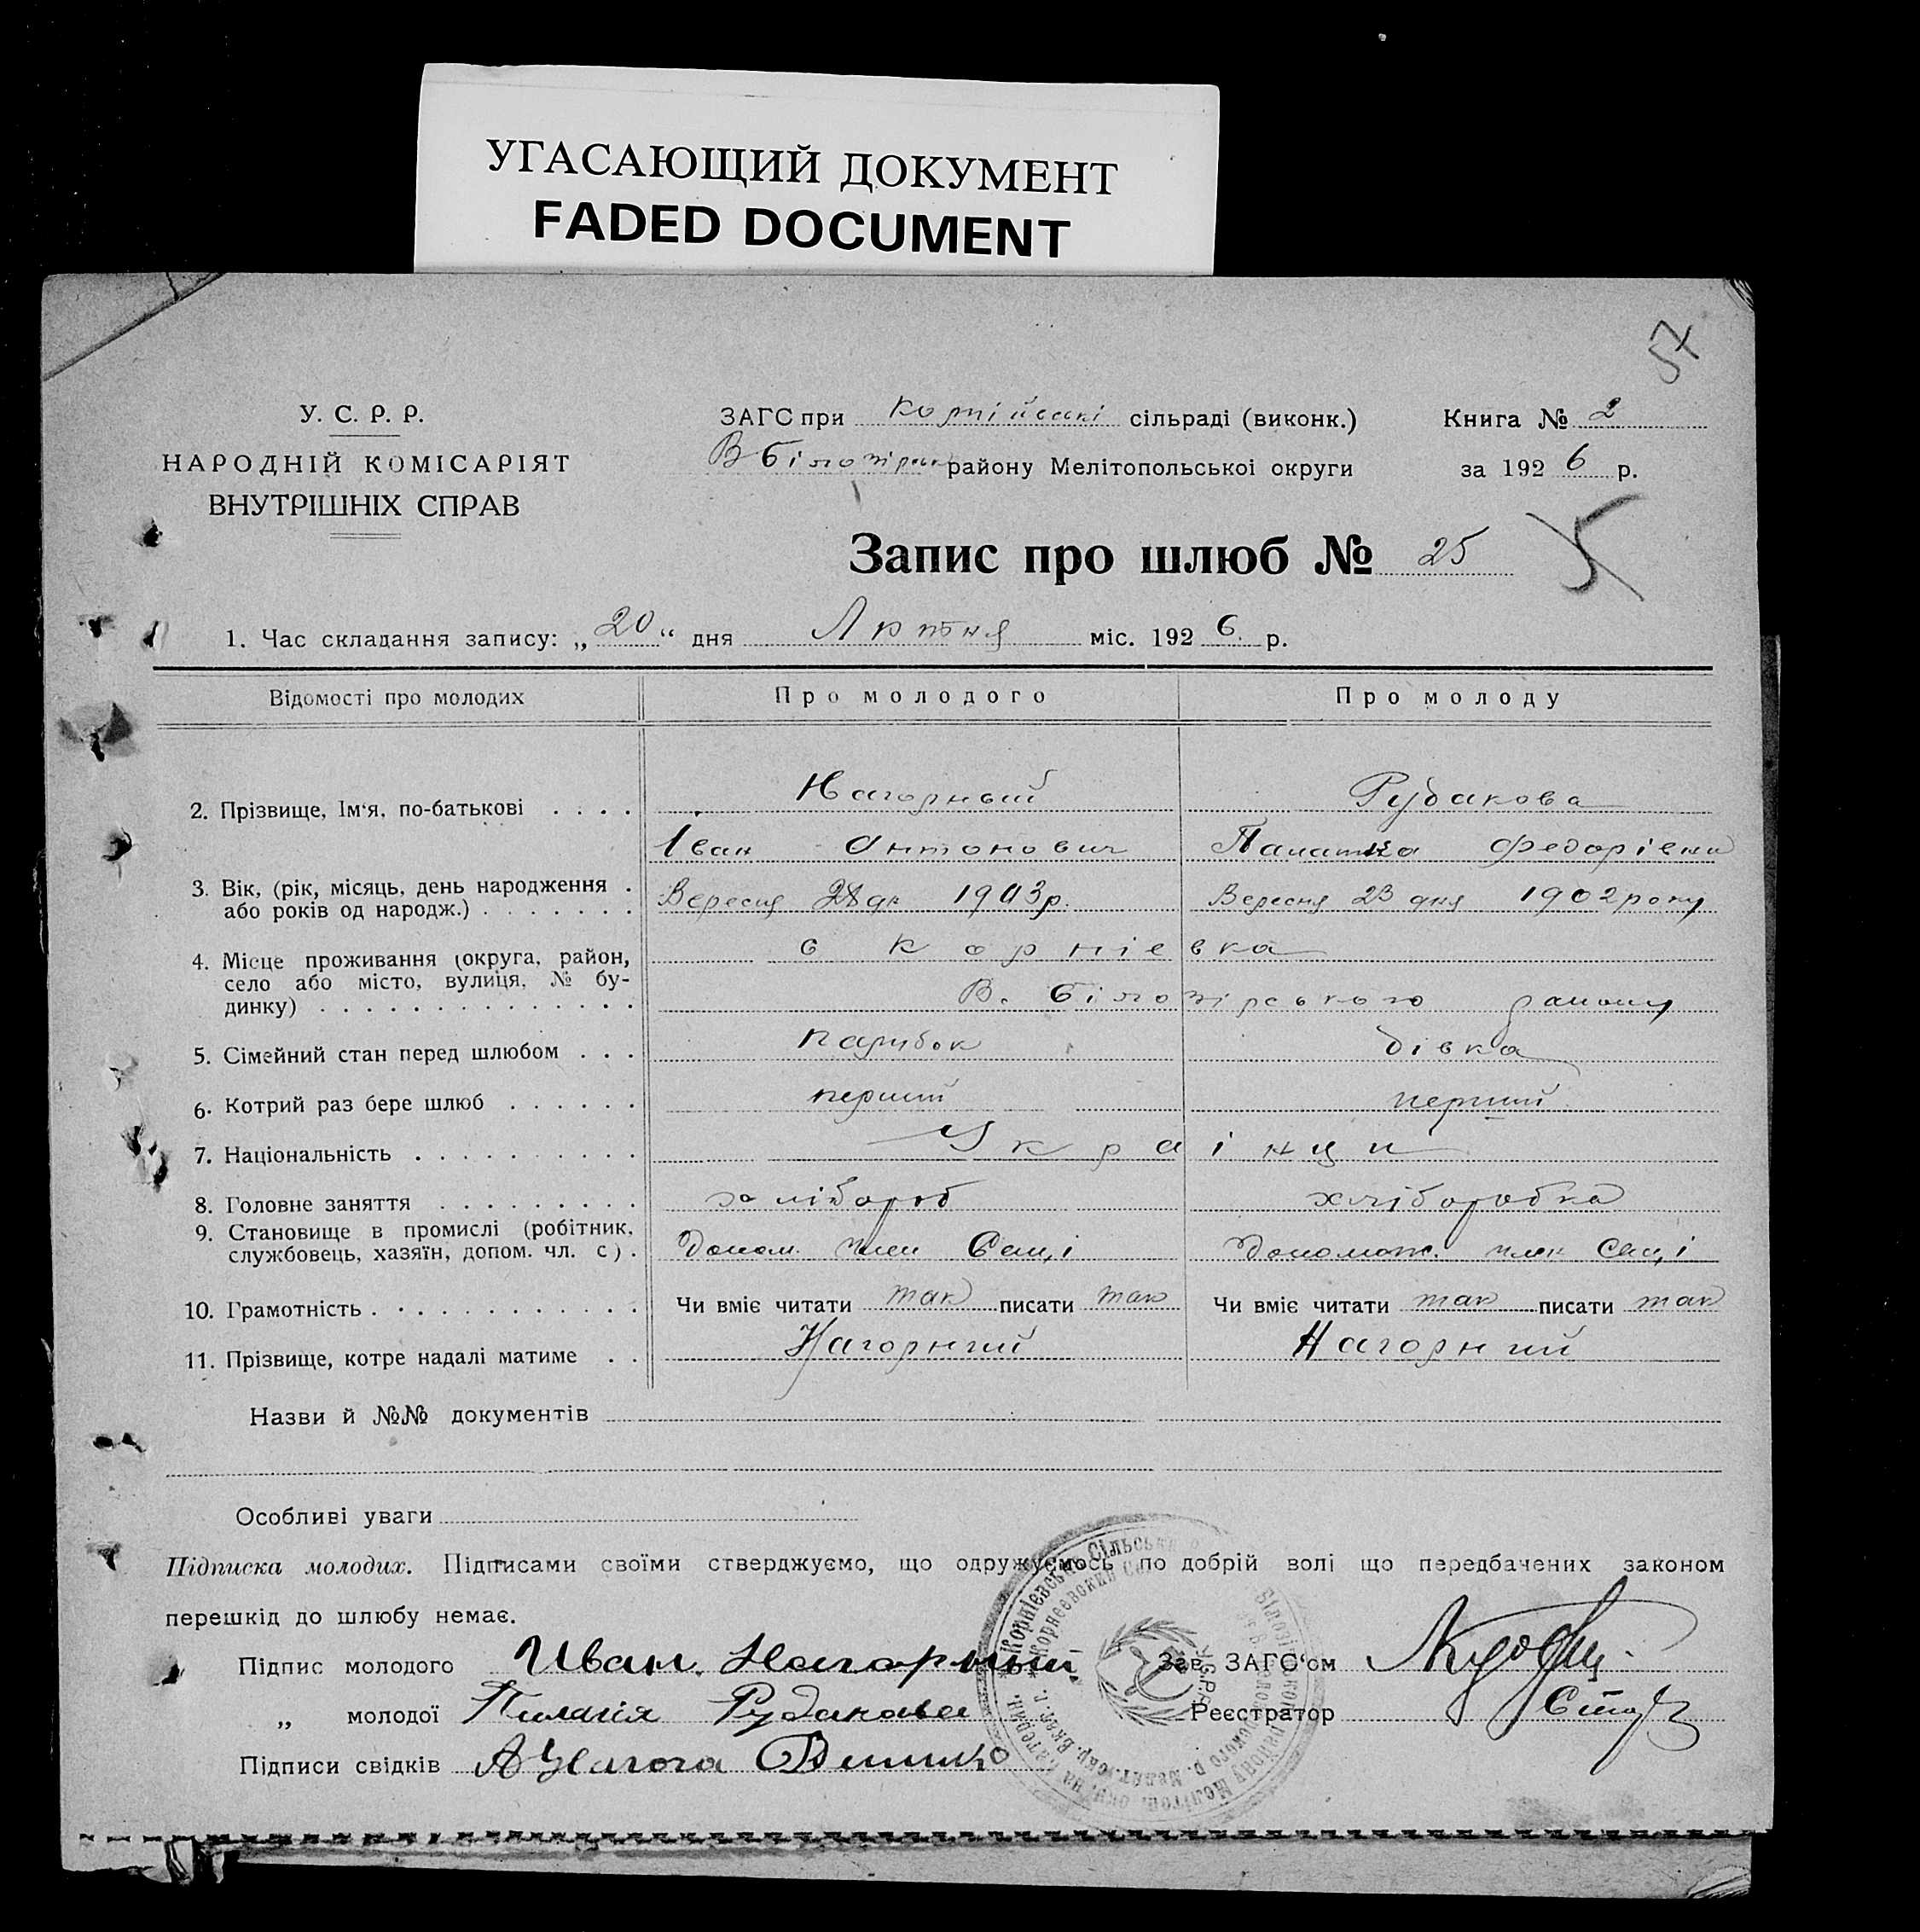 УГАСАЮЩИЙ ДОКУМЕНТ
FADED DOCUMENT
57
У. С. Р. Р.
НАРОДНІЙ КОМІСАРІЯТ
ВНУТРІШНІХ СПРАВ
ЗАГС при Корнійські сільраді (виконк.)
В білозірськ району Мелітопольськоі округи
Книга № 2
за 1926 р.
Запис про шлюб № 25
1. Час складання запису: „20“ дня Лютня міс. 1926. р.
Відомості про молодих Про молодого Про молоду
2. Прізвище, Ім'я, по-батькові . . . . Нагорный Рудакова
Іван Антонович Федорівна
3. Вік, (рік, місяць, день народження . або років од народж.) . . . . . . . Вересня 28 дн 1903р. Вересня 23 дня 1902 року
4. Місце проживання (округа, район, село або місто, вулиця, № будинку) . . . . . . . . . . . . . . с Корніевка
В. білозірського району
5. Сімейний стан перед шлюбом . . . парубок дівка
6. Котрий раз бере шлюб . . . . . . перший перший
7. Національність . . . . . . . . . . Украінци
8. Головне заняття . . . . . . . . . хлібороб хліборобка
9. Становище в промислі (робітник, службовець, хазяїн, допом. чл. с) . Допом. член Семі Допомож. член Семі
10. Грамотність . . . . . . . . . . . . Чи вміє читати так писати так Чи вміє читати так писати так
11. Прізвище, котре надалі матиме . . Нагорний Нагорний
Назви й №№ документів
Особливі уваги
Підписка молодих. Підписами своїми стверджуємо, що одружуємось по добрій волі що передбачених законом
перешкід до шлюбу немає.
Підпис молодого Иван. Нагорный Зав. ЗАГС'ом
„ молодої Пилагія Рудакова Реєстратор
Підписи свідків